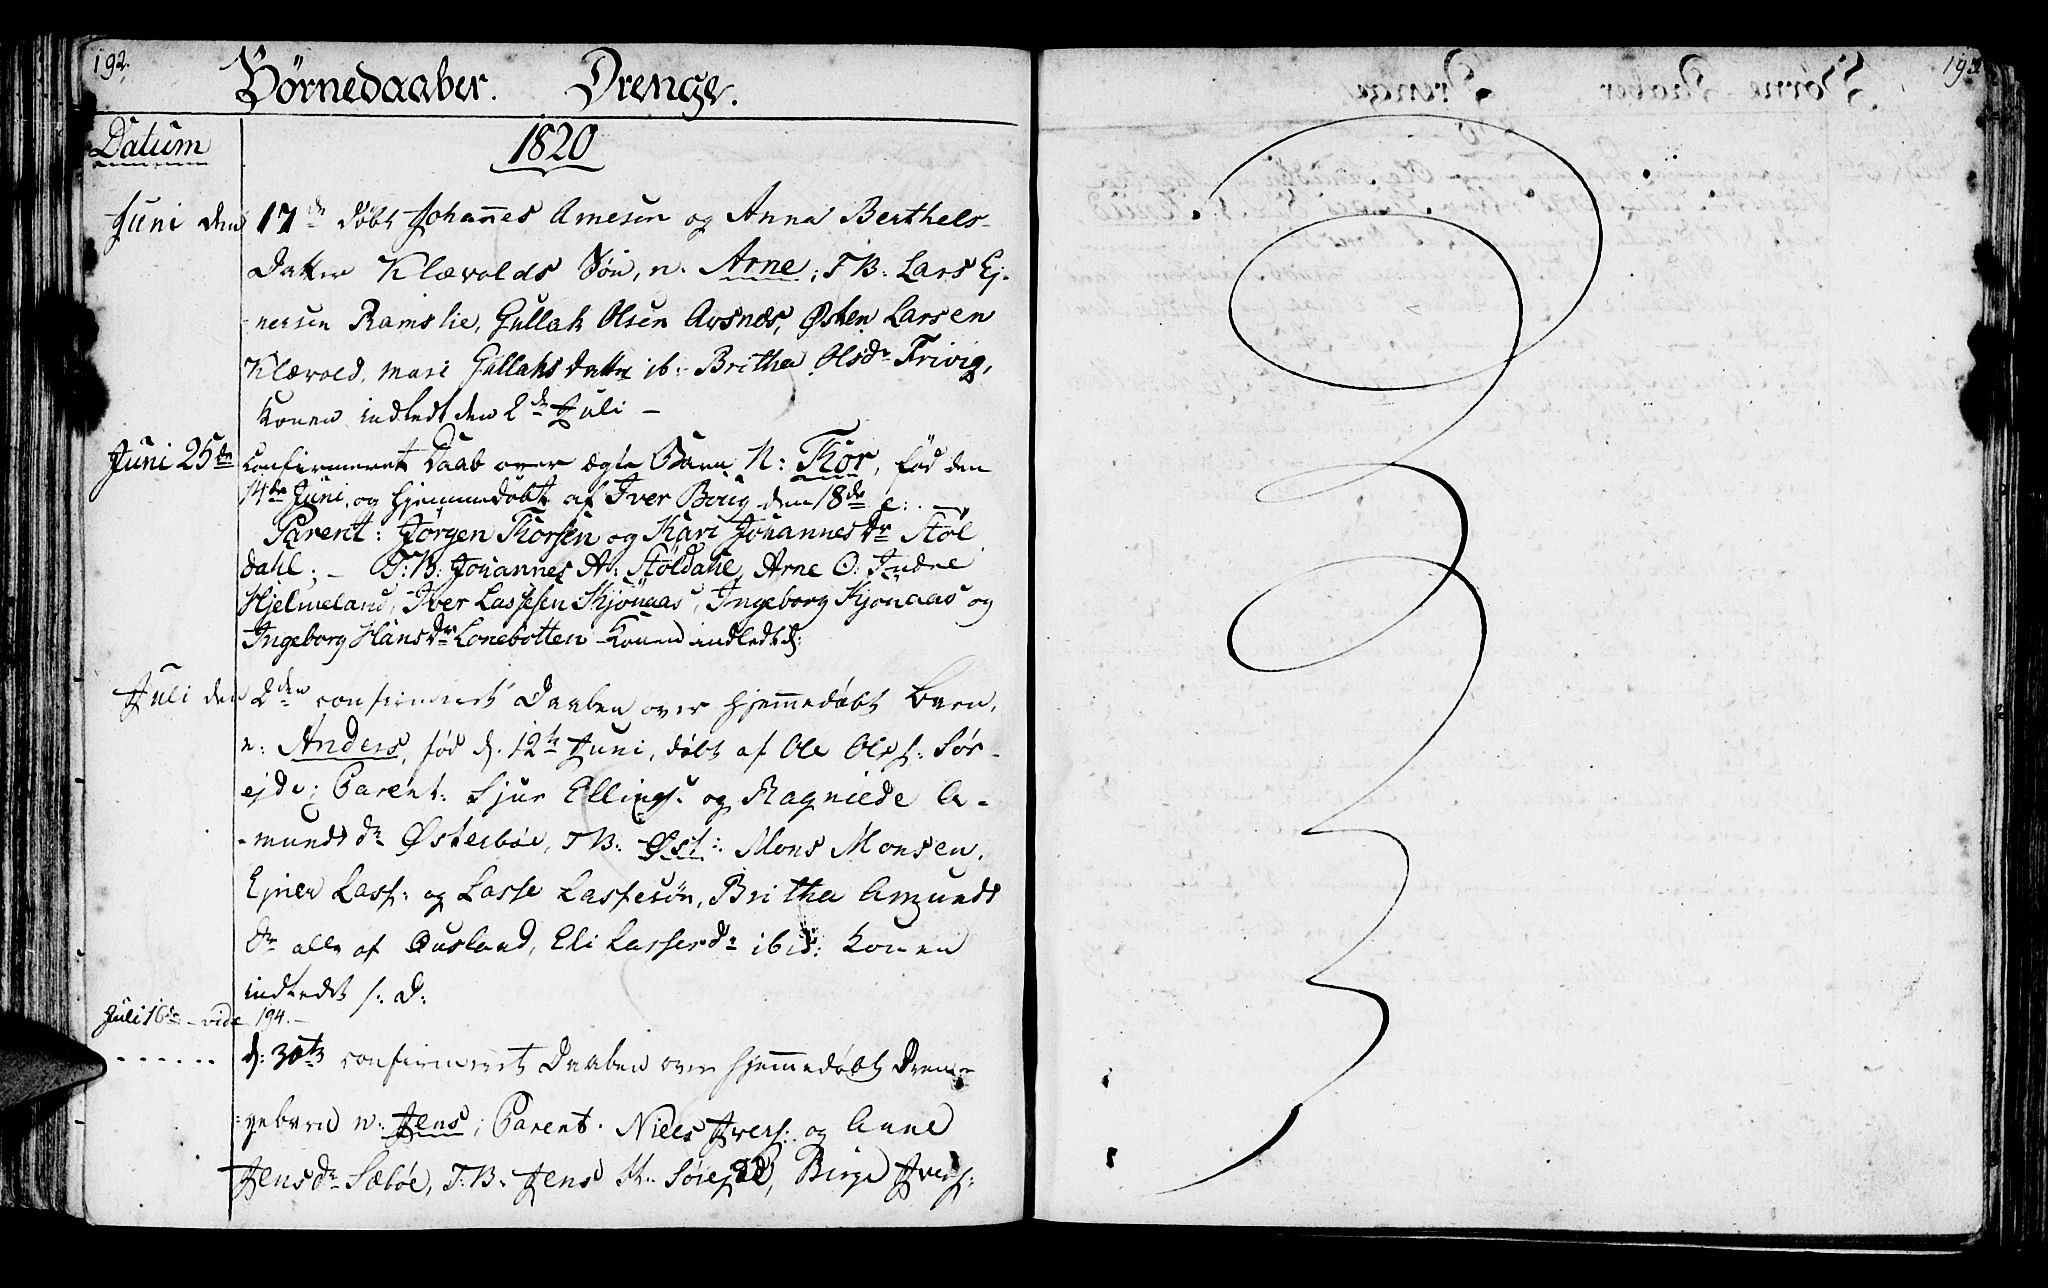 192.
Børnedaaber. Drenge.
Datum
1820
Juni den 17de døbt Johannes Arnesen og Anna Berthels-
Datter Klævolds Søn, n. Arne; T: B: Lars Ej-
nersen Ramslie, Gullak Olsen Aasnæs, Østen Larsen
Klævold, Mari Gullaksdatter ib: Britha Olsdr Trivig,
Konen indledt den 2de Juli –
Juni 25de confirmeret Daab over ægte Barn N: Thor, fød den
14de Juni, og hjemmedøbt af Iver Bøiig den 18de e: –
Parent: Jørgen Thorsen og Kari Johannesdr Støl
dahl; – T: B: Johannes A: Støldahl, Arne O: Indre
Hjelmeland, Iver Lassesen Kjønaas, Ingeborg Kjonaas og
Ingeborg Hansdr Lonebotten – Konen indledt d:
Juli den 2den confirmeret Daaben over hjemmedøbt Barn,
n: Anders, fød d. 12te Juni, døbt af Ole Ols: Sør-
ejde; Parent: Sjur Ellings: og Ragnilde A-
-munds dr Østerbøe, T B: Øst: Mons Monsen,
Ejner Lass: og Lasse Lassesøn, Britha Amunds
dr alle af Ousland, Eli Lassesdr ibid: Konen
indledt s: d:
Juli 16de – vide 194. –
...... d: 30te confirmeret Daaben over hjemmedøbt Dren-
-gebarn n: Jens; Parent. Niels Ivers: og Anne
Jensdr Sæbøe, T: B: Jens Sørejde, Birge Ivers:
193